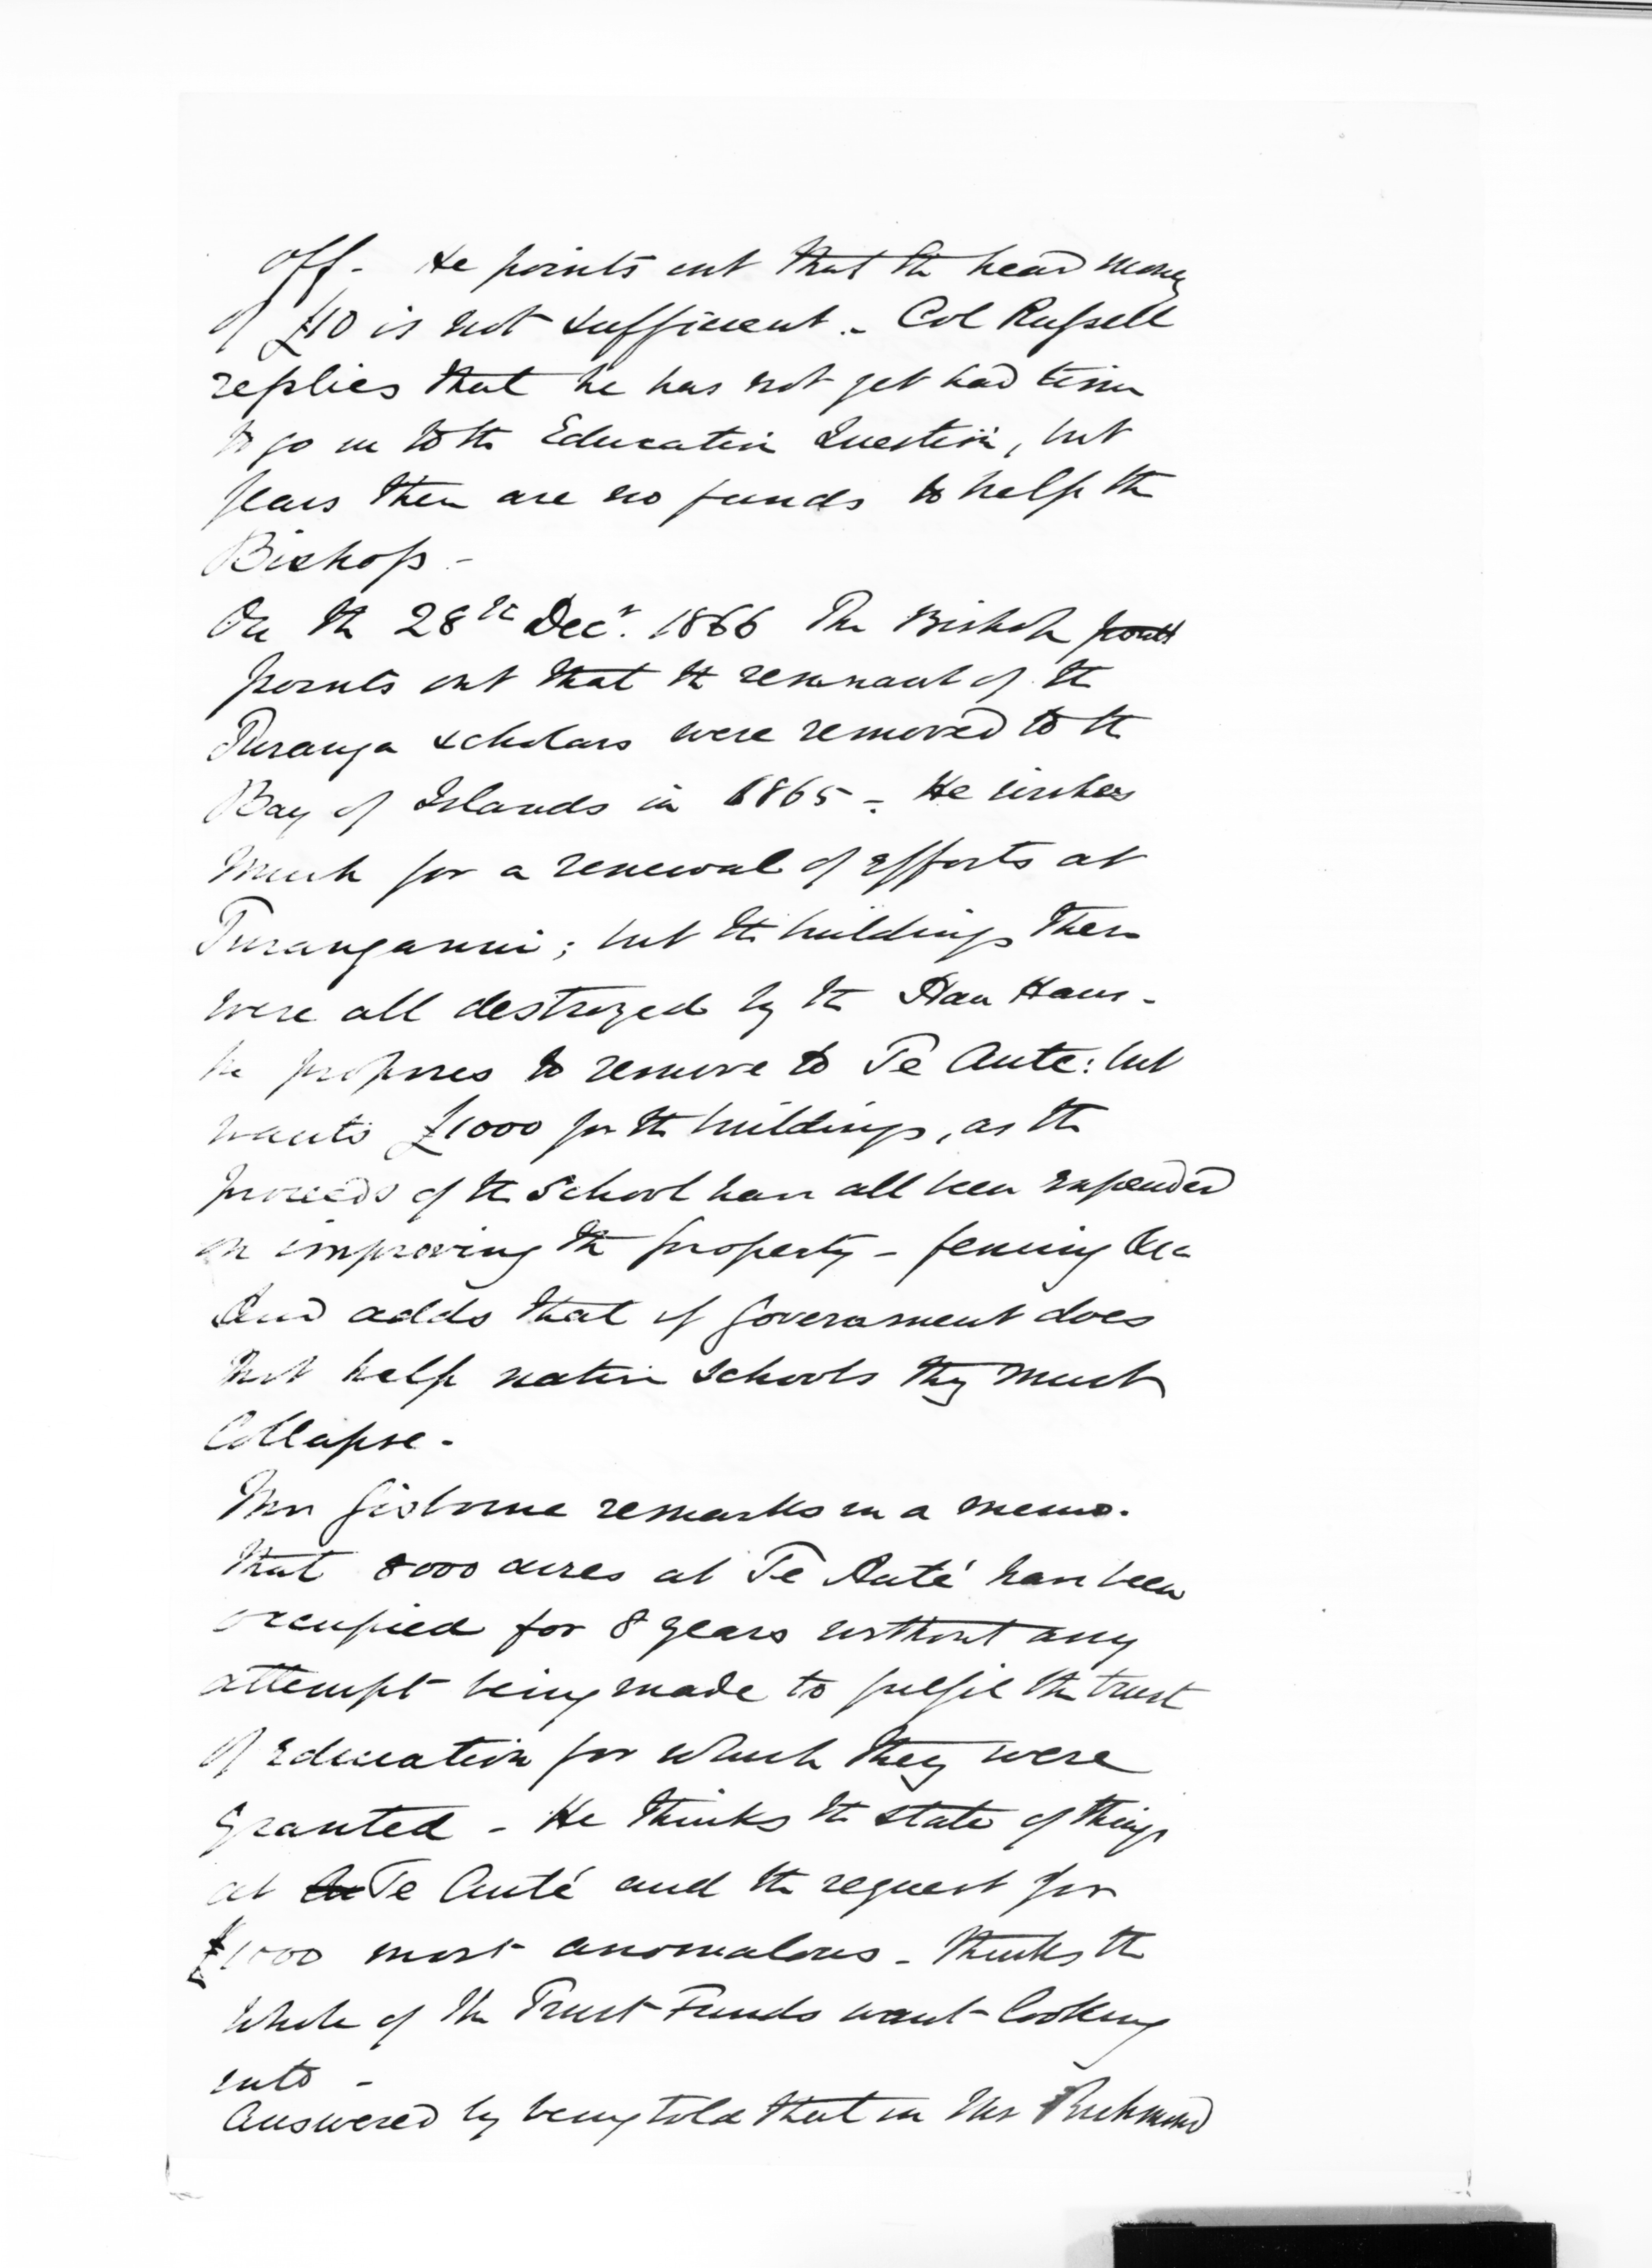 off - He points out that the head money
of £10 is not sufficient. - Col Russell
replies that he has not yet had time
to go in to the Education Question, but
fears there are no funds to help the
Bishop -
On the 28th Decr. 1866 The Bishop
points out that the remnant of the
Turanga scholars were removed to the
Bay of Islands in 1865 - He wishes
much for a renewal of efforts at
Turanganui; but the buildings there
were all destroyed by the Hau Haus -
he proposes to remove to Te Aute: but
wants £1000 for the buildings, as the
proceeds of the School have all been expended
in improving the property - fencing &c
And adds that if Government does
not help native schools they must
Collapse -
Mr Gisborne remarks in a memo.
that 8000 acres at Te Auté have been
occupied for 8 years without any
attempt being made to fulfil the trust
of education for which they were
granted - He thinks the state of things
at Te Auté and the request for
£1000 most anomalous - thinks the
whole of the Trust Funds want looking
into -
Answered by being told that in Mr Richmond